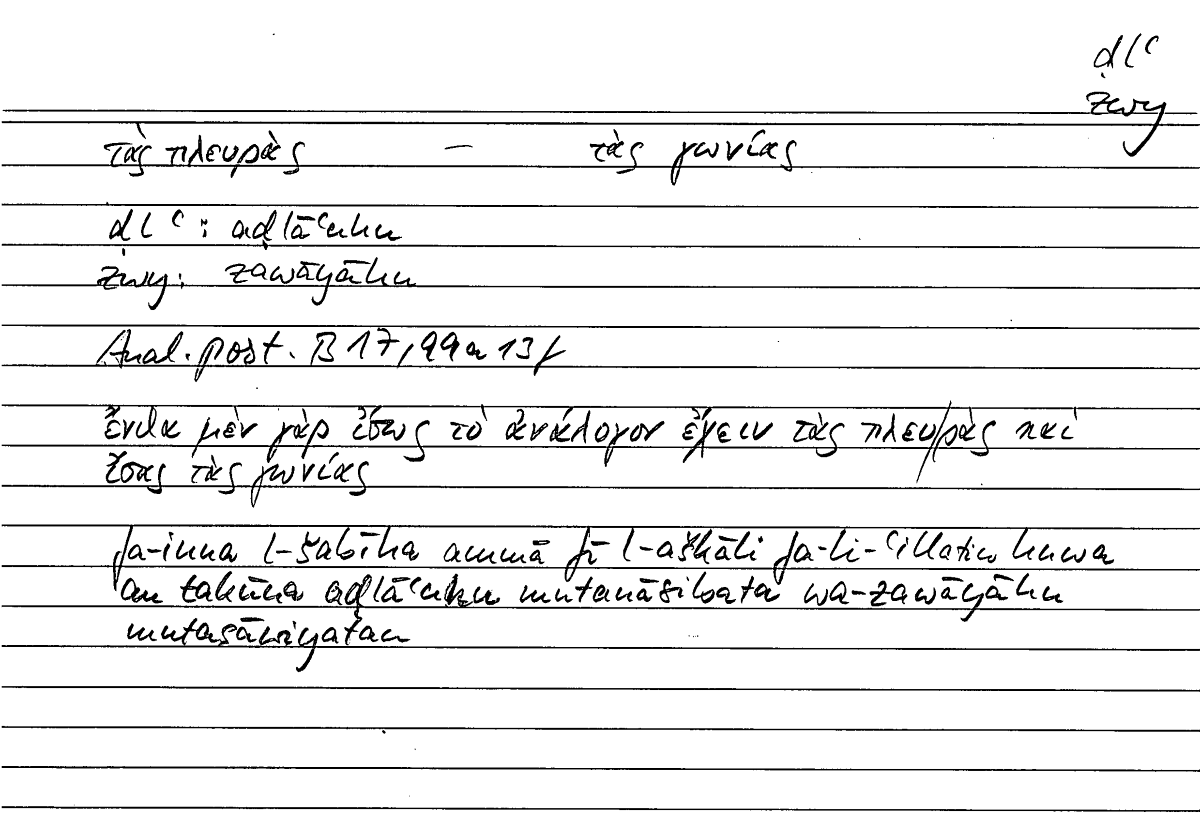 ḍlʿ
zwy
τὰς πλευρὰς — τὰς γωνίας
ḍlʿ: aḍlāʿuhu
zwy: zawāyāhu
Anal. post. B 17, 99a 13f
ἔνθα μὲν γὰρ ἴσως τὸ ἀνάλογον ἔχειν τὰς πλευρὰς καὶ
ἴσας τὰς γωνίας
fa-inna l-šabīha ammā fī l-aškāli fa-li-ʿillatin huwa
an takūna aḍlāʿuhu mutanāsibata wa-zawāyāhu
mutasāwiyatan